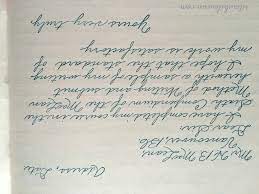 Address, Date
Mr. H. B. MacLean
Vancouver, B.C.
Dear Sir:
I have completed my course in the
Teach Compendium of the MacLean
Method of Writing and submit
herewith a sample of my writing
I hope that the standard of
my work is satisfactory
Yours very truly